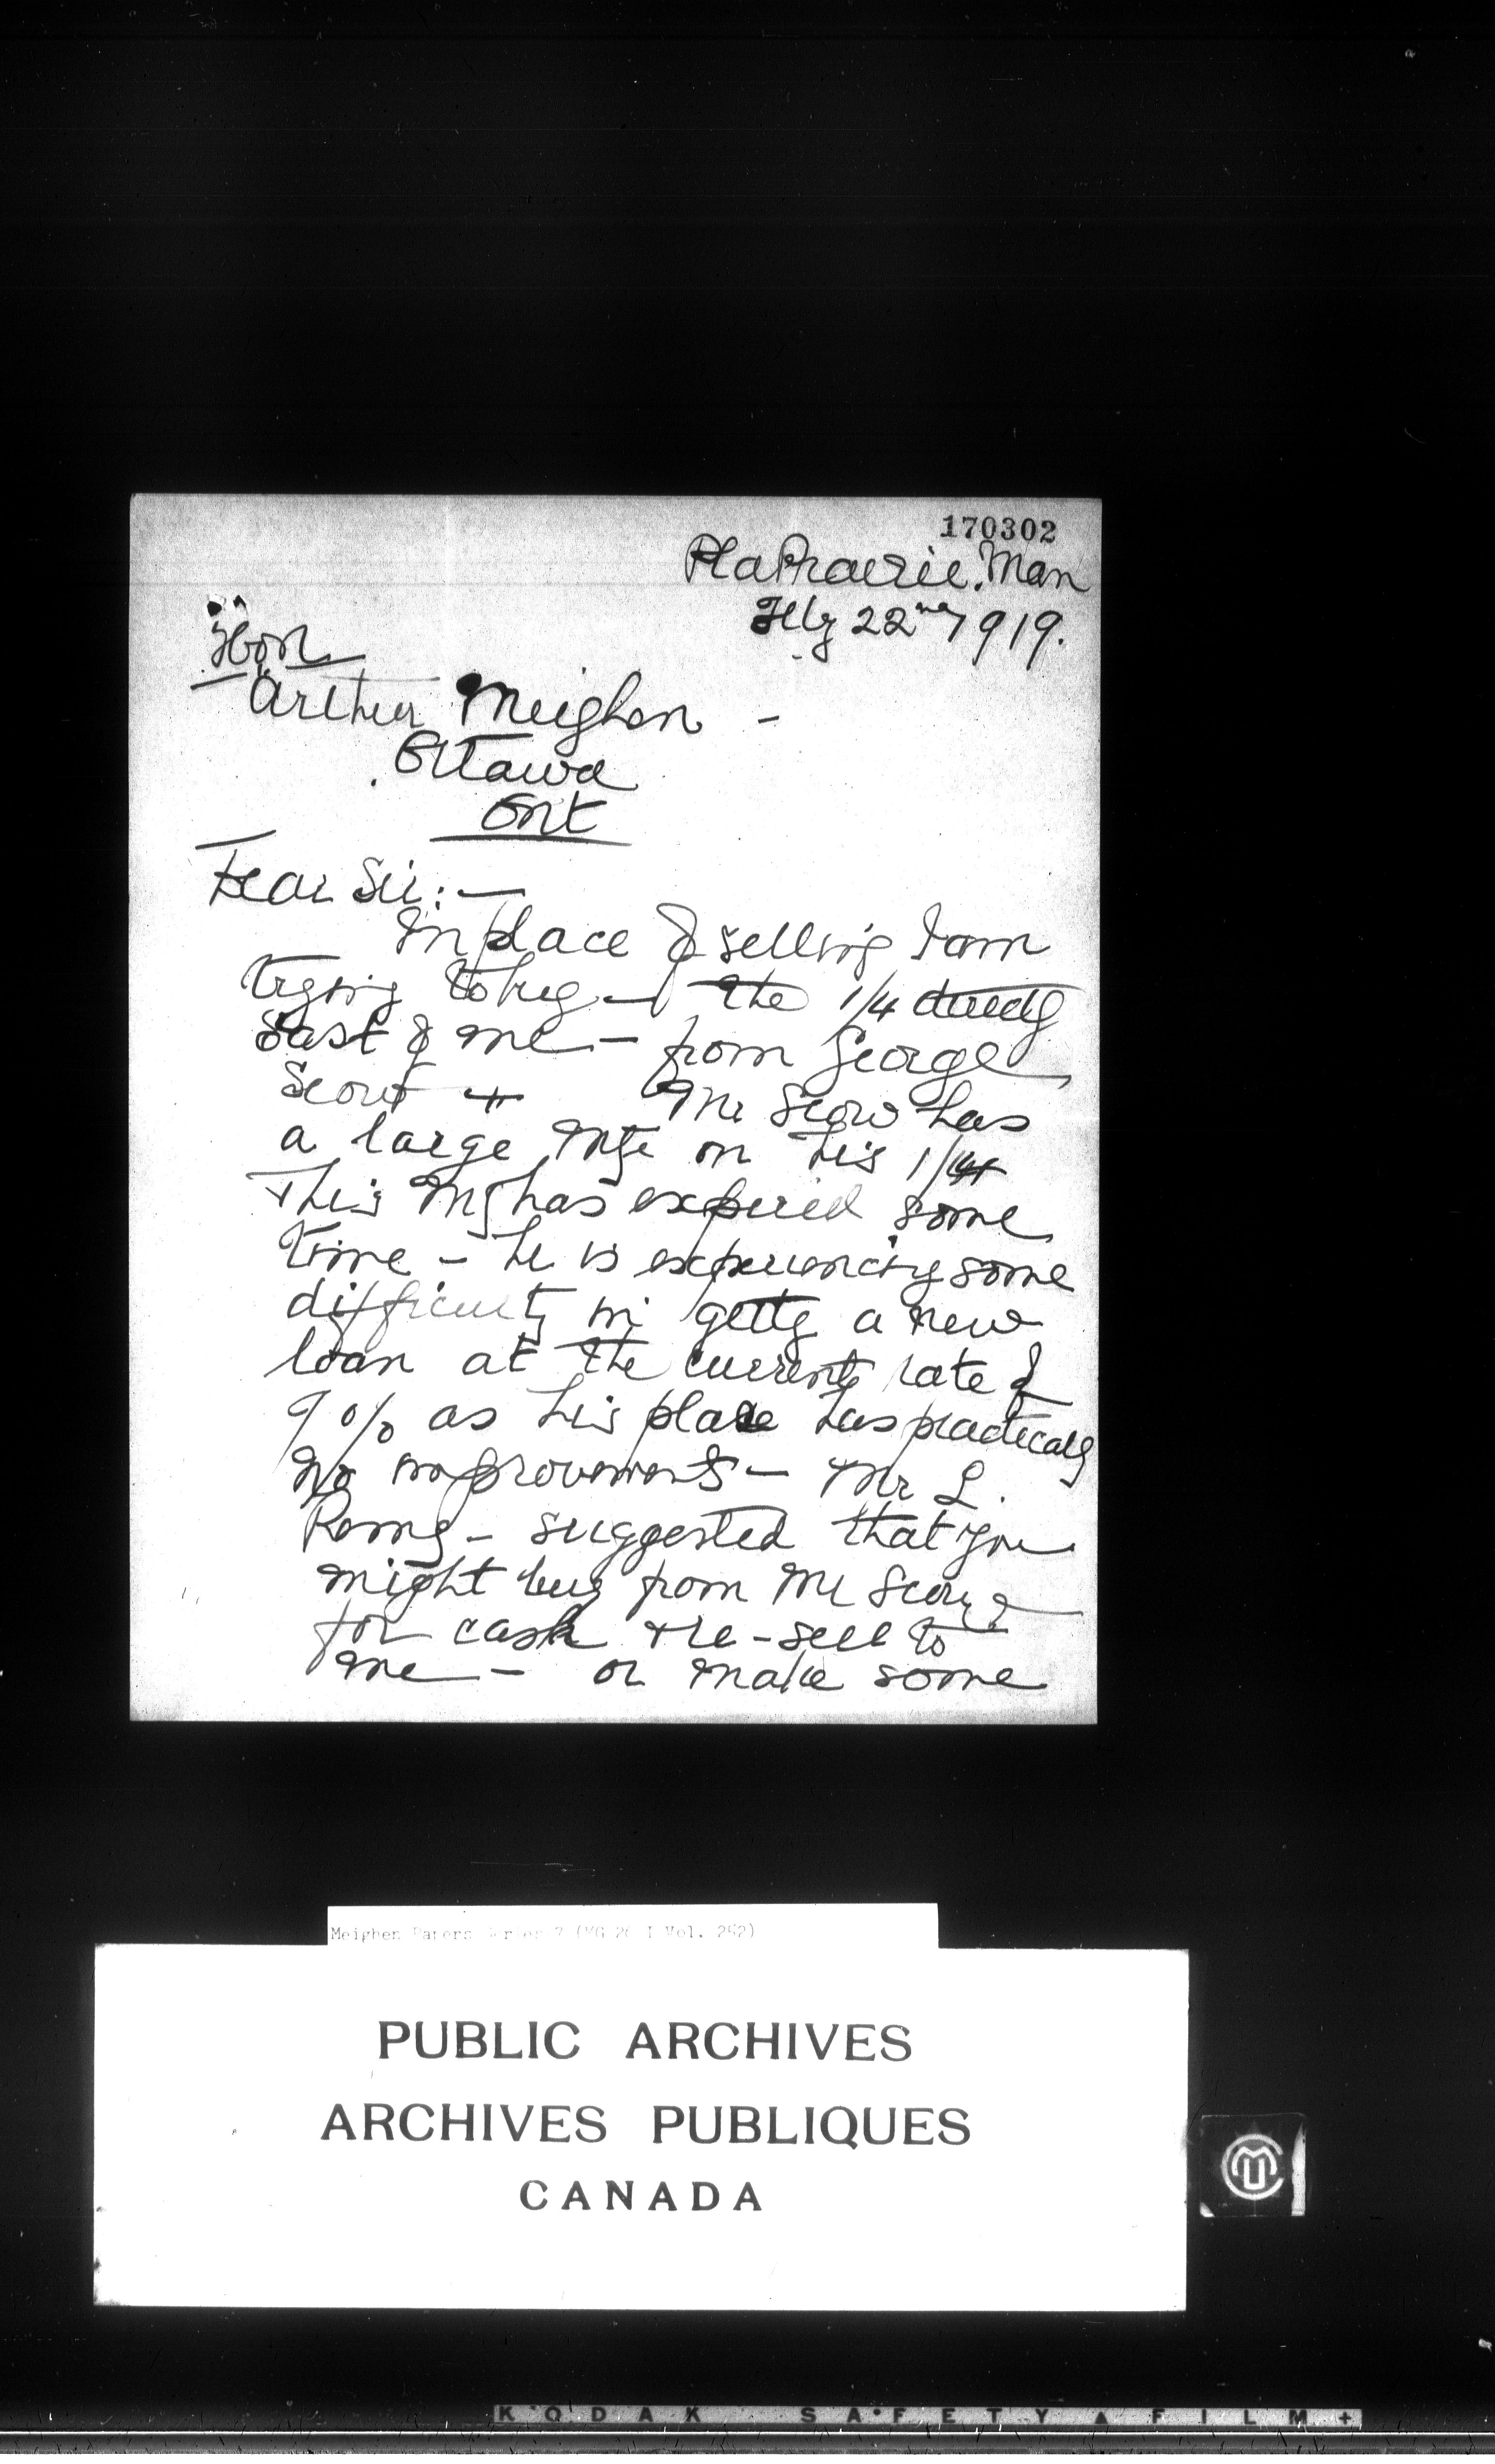 170302
P la Prairie. Man
Feby 22nd 1919.
Hon
Arthur Meighen -
Ottawa
Ont
Dear Sir: —
In place of selling I am
trying to buy — the 1/4 directly
East of me — from George
Scow Mr Scow has
a large Mtge on his 1/4
This Mtg has expired some
time - he is experiencing some
difficulty in getting a new
loan at the current rate of
9 % as his place has practically
no improvements — Mr L.
- suggested that you
might buy from Mr Scow
for cash & re-sell to
me - or make some
Meighen Papers Series 7 (MG 26 I Vol. 252)
PUBLIC ARCHIVES
ARCHIVES PUBLIQUES
CANADA
KODAK SAFETY FILM